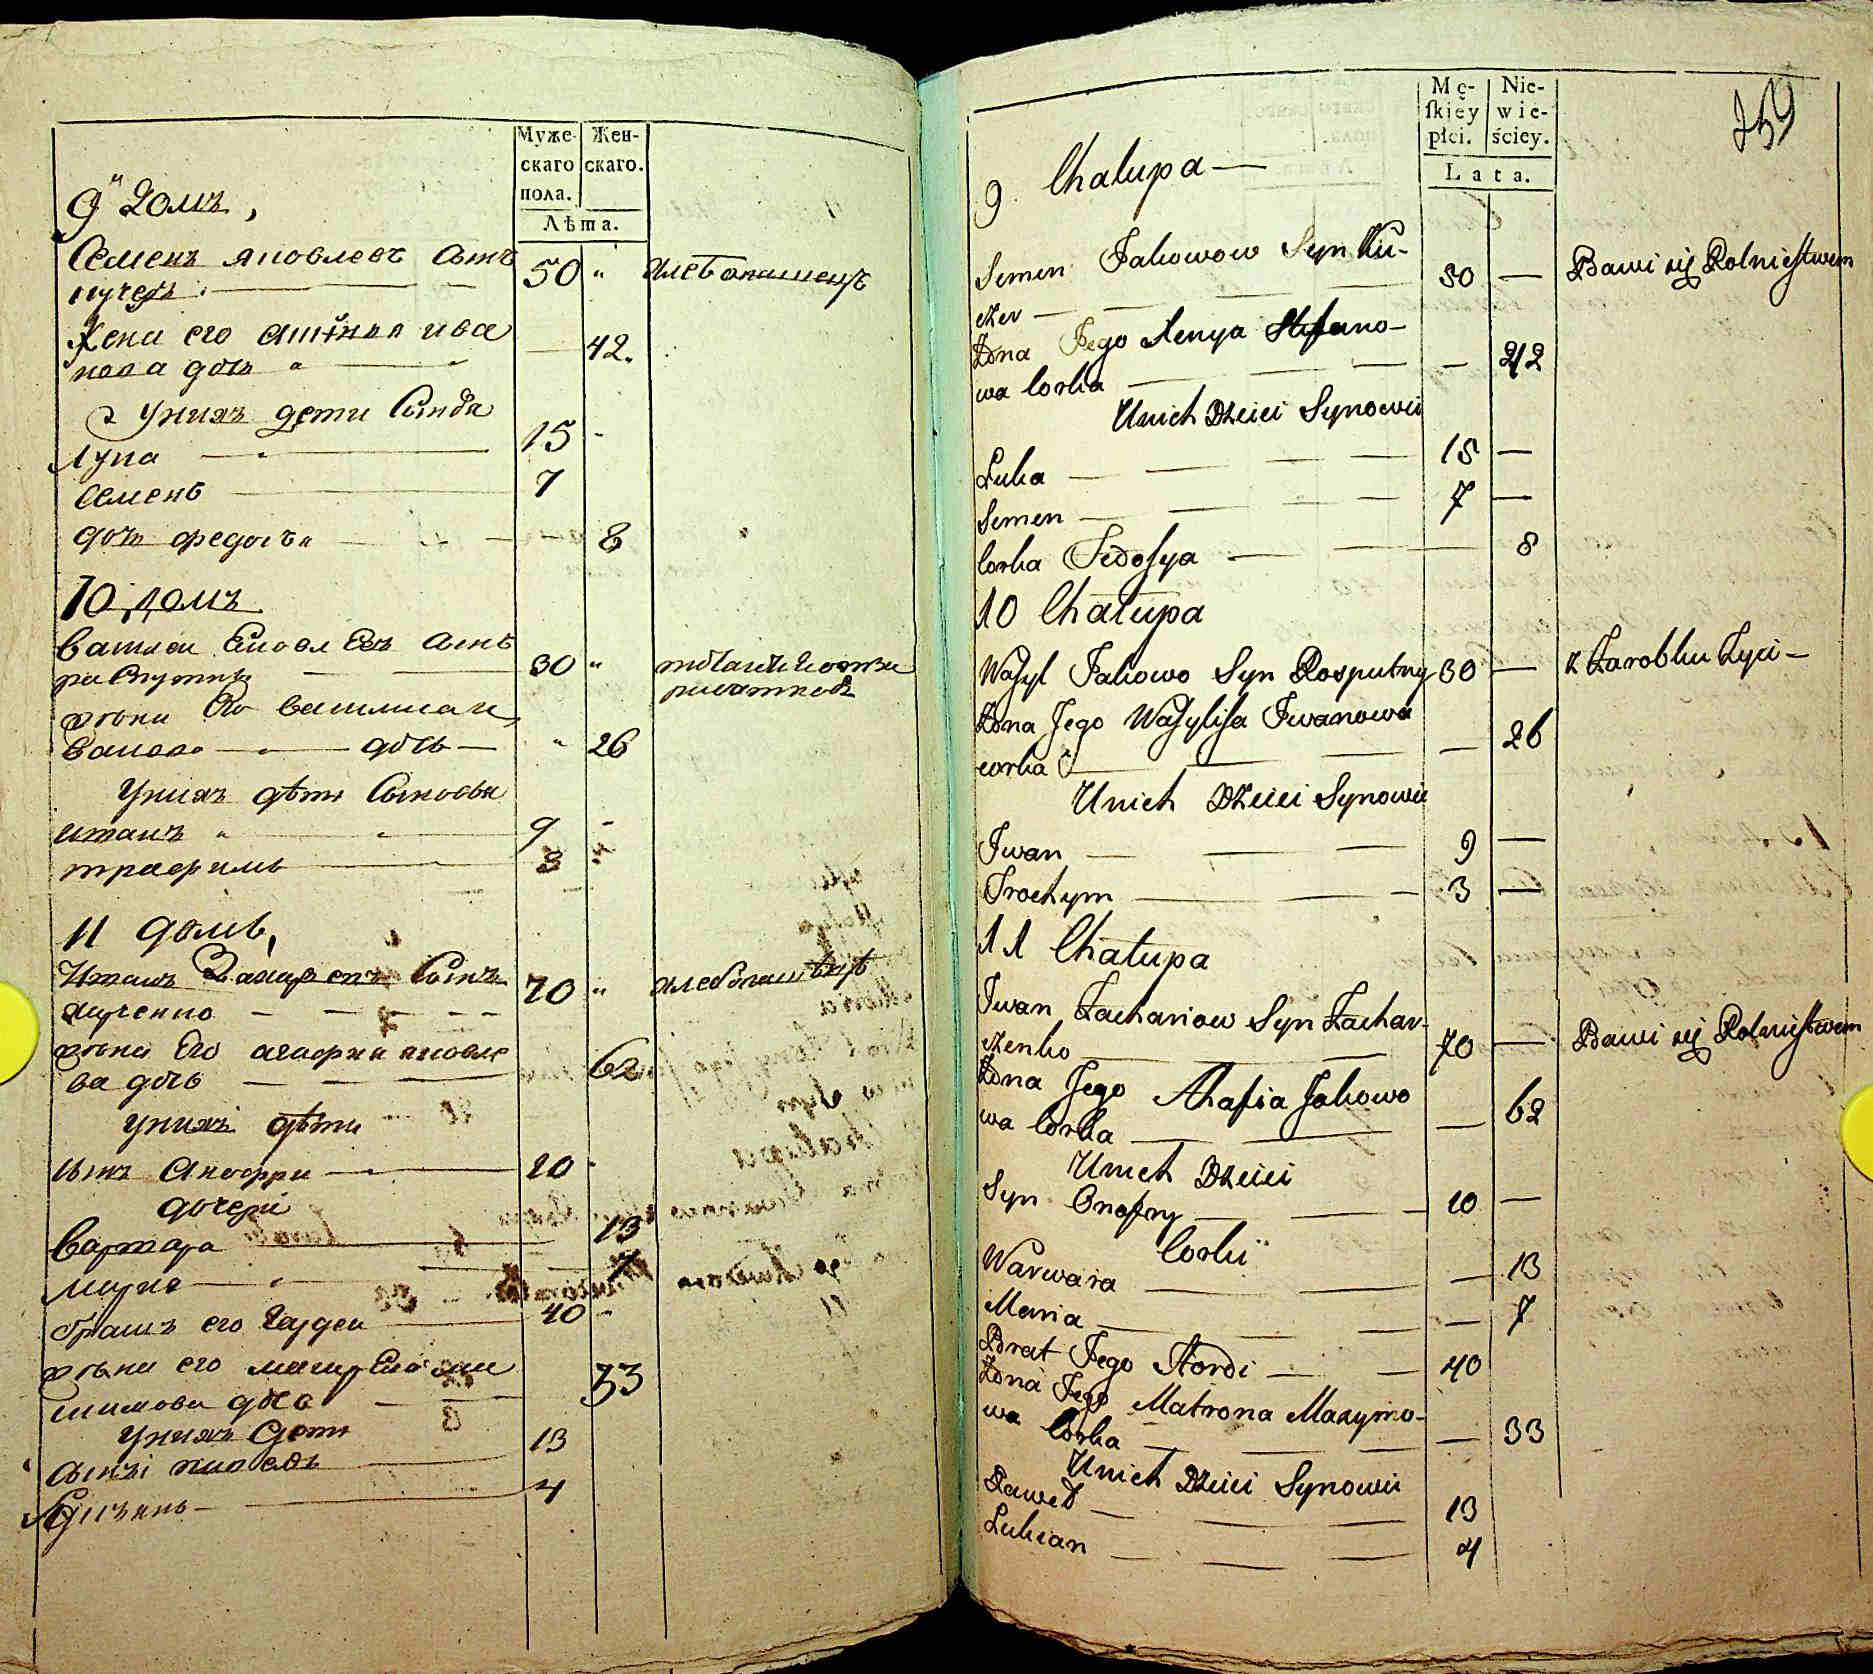 Муже-
скаго
пола.
Жен-
скаго.
Лѣта.
9 Домъ,
Семенъ яковлевъ сынъ
кучеръ 50 " хлебопашецъ
Жена его
нова дочь 42.
У нихъ дети Сынова
Лука 15
Семенъ 7
дочь федосья 8
10 домъ
Василеи яковлевъ сынъ
распутнъ 30 "
жена его василиса и
ванова дочь " 26
У нихъ дѣти Сыновья
иванъ 9
трафимъ 3
11 домъ,
Иванъ Захаревъ Сынъ
70 " хлебопашецъ
жена Его агафия яковле
ва дочь 62
У нихъ дѣти
сынъ Анофри 20
дочери
Варвара 13
Мария 7
братъ его гардеи 40
жена его
симова дочь 33
У нихъ дети
сынъ павелъ 13
Лукиянъ 4
Mę-
ſkiey
płci.
Nie-
wie-
ściey.
Lata.
259
9 Chalupa
Semen Jakowow Syn Ku-
czer 50 — Bawi się Rolnictwem
Żona Jego Xenya Stefano-
wa Corka — 42
U nich Dzieci Synowie
Luka 15 —
Semen 7 —
Corka Fedosya 8
10 Chalupa
Wasyl Jakowo Syn Rosputny 30 — z Zarobku Zyie
Żona Jego Wasylisa Jwanowa
corka — 26
U nich Dzieci Synowie
Jwan 9 —
Trochym 3 —
11 Chalupa
Jwan Zachariow Syn Zachar-
czenko 70 — Bawi się Rolnictwem
Żona Jego Ahafia Jakowo
wa Corka — 62
U nich Dzieci
Syn Onofry 20 —
Corki
Warwara — 13
Maria — 7
Brat Jego Hordi 40
Żona Jego Matrona Maxymo-
wa Corka — 33
U nich Dzieci Synowie
Paweł 13
Lukian 4